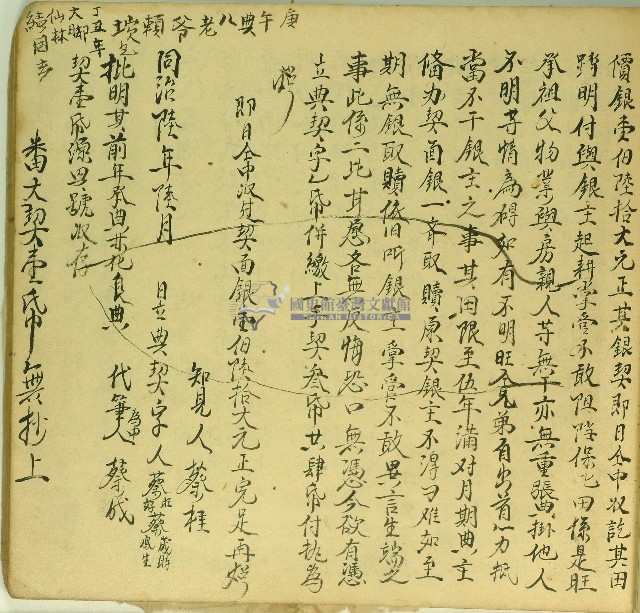 價銀壹佰陸拾大元正其銀契即日仝中收訖其田
踏明付與銀主起耕掌管不敢阻障保此田係是旺
承祖父物業與房親人等無干亦無重張掛他人
不明等情為碍如有不明旺兄弟自出首一力抵
當不干銀主之事其田限至伍年滿对月期典主
俻办契面銀一齊取贖原契銀主不得刁难如至
期無銀取贖依旧听銀主掌管不敢異言生端之
事此係二比甘愿各無反悔恐口無憑今欲有憑
立典契字乙帋併繳上手契叁帋共肆帋付执為
炤
即日仝中收过契面銀壹佰陸拾大元正完足再炤
知見人蔡桂
同治陸年陸月 日立典契字人蔡旺 蔡成時
批明其前年
代筆人為中蔡成
契壹帋 號收存
番大契壹帋無抄上
庚午典八老爷賴
丁丑年
大脚
仙林
國史館臺灣文獻館
TAIWAN HISTORICA